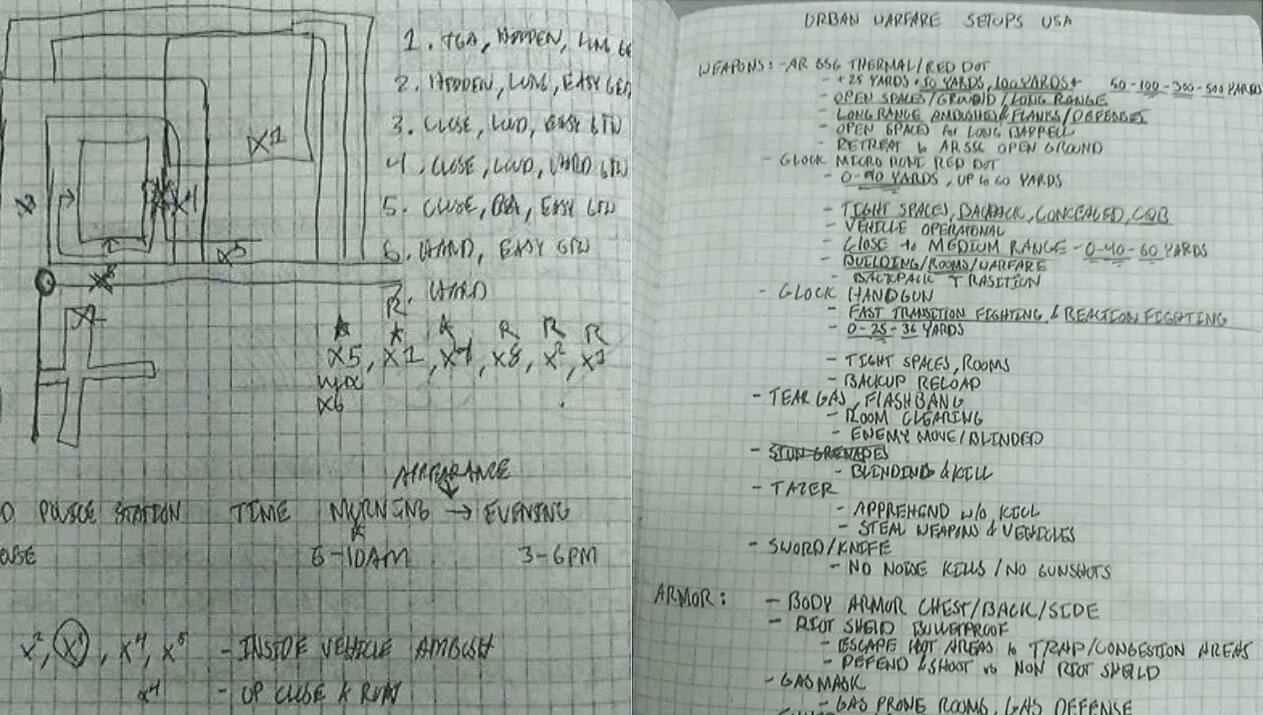 1. TGA, HIDDEN, LUM
2. HIDDEN, LUM, EASY
3. CLOSE, EASY
4. CLOSE,
5. CLOSE, EASY
6. HARD, EASY
7. HARD
X1
X5
R
R R R
X5, X1, X4, X8, X2, X1
X6
APPEARANCE
POLICE STATION TIME MORNING → EVENING
6-10AM 3-6PM
X2, X1, X4, X5 - INSIDE VEHICLE AMBUSH
X4 - UP CLOSE & RUN
URBAN WARFARE SETUPS USA
WEAPONS: - AR 556 THERMAL/RED DOT
- +25 YARDS • 50 YARDS, 100 YARDS+ 50-100-300-500 YARDS
- OPEN SPACES/GROUND/LONG RANGE
- LONG RANGE AMBUSHES & FLANKS/DEFENSES
- OPEN SPACES for LONG BARRELL
- RETREAT to OPEN GROUND
- GLOCK MICRO RONI RED DOT
- YARDS, UP to 60 YARDS
- TIGHT SPACES, BACKPACK, CONCEALED, CQB
- VEHICLE OPERATIONAL
- CLOSE to MEDIUM RANGE - 0-40-60 YARDS
- BUILDING/ROOMS/WARFARE
- BACKPACK TRASITION
- GLOCK HANDGUN
- FAST TRANSITION FIGHTING & REACTION FIGHTING
- 0-25-36 YARDS
- TIGHT SPACES, ROOMS
- BACKUP RELOAD
- TEAR GAS, FLASHBANG
- ROOM CLEARING
- ENEMY MOVE/BLINDED
- STUN GRENADES
- BLINDING & KILL
- TAZER
- APPREHEND W/O KILL
- STEAL WEAPONS & VEHICLES
- SWORD/KNIFE
- NO NOISE KILLS/NO GUNSHOTS
ARMOR: - BODY ARMOR CHEST/BACK/SIDE
- RIOT SHEILD BULLETPROOF
- ESCAPE HOT AREAS to TRAP/CONGESTION AREAS
- DEFEND & SHOOT vs NON RIOT SHEILD
- GAS MASK
- GAS PRONE ROOMS, GAS DEFENSE